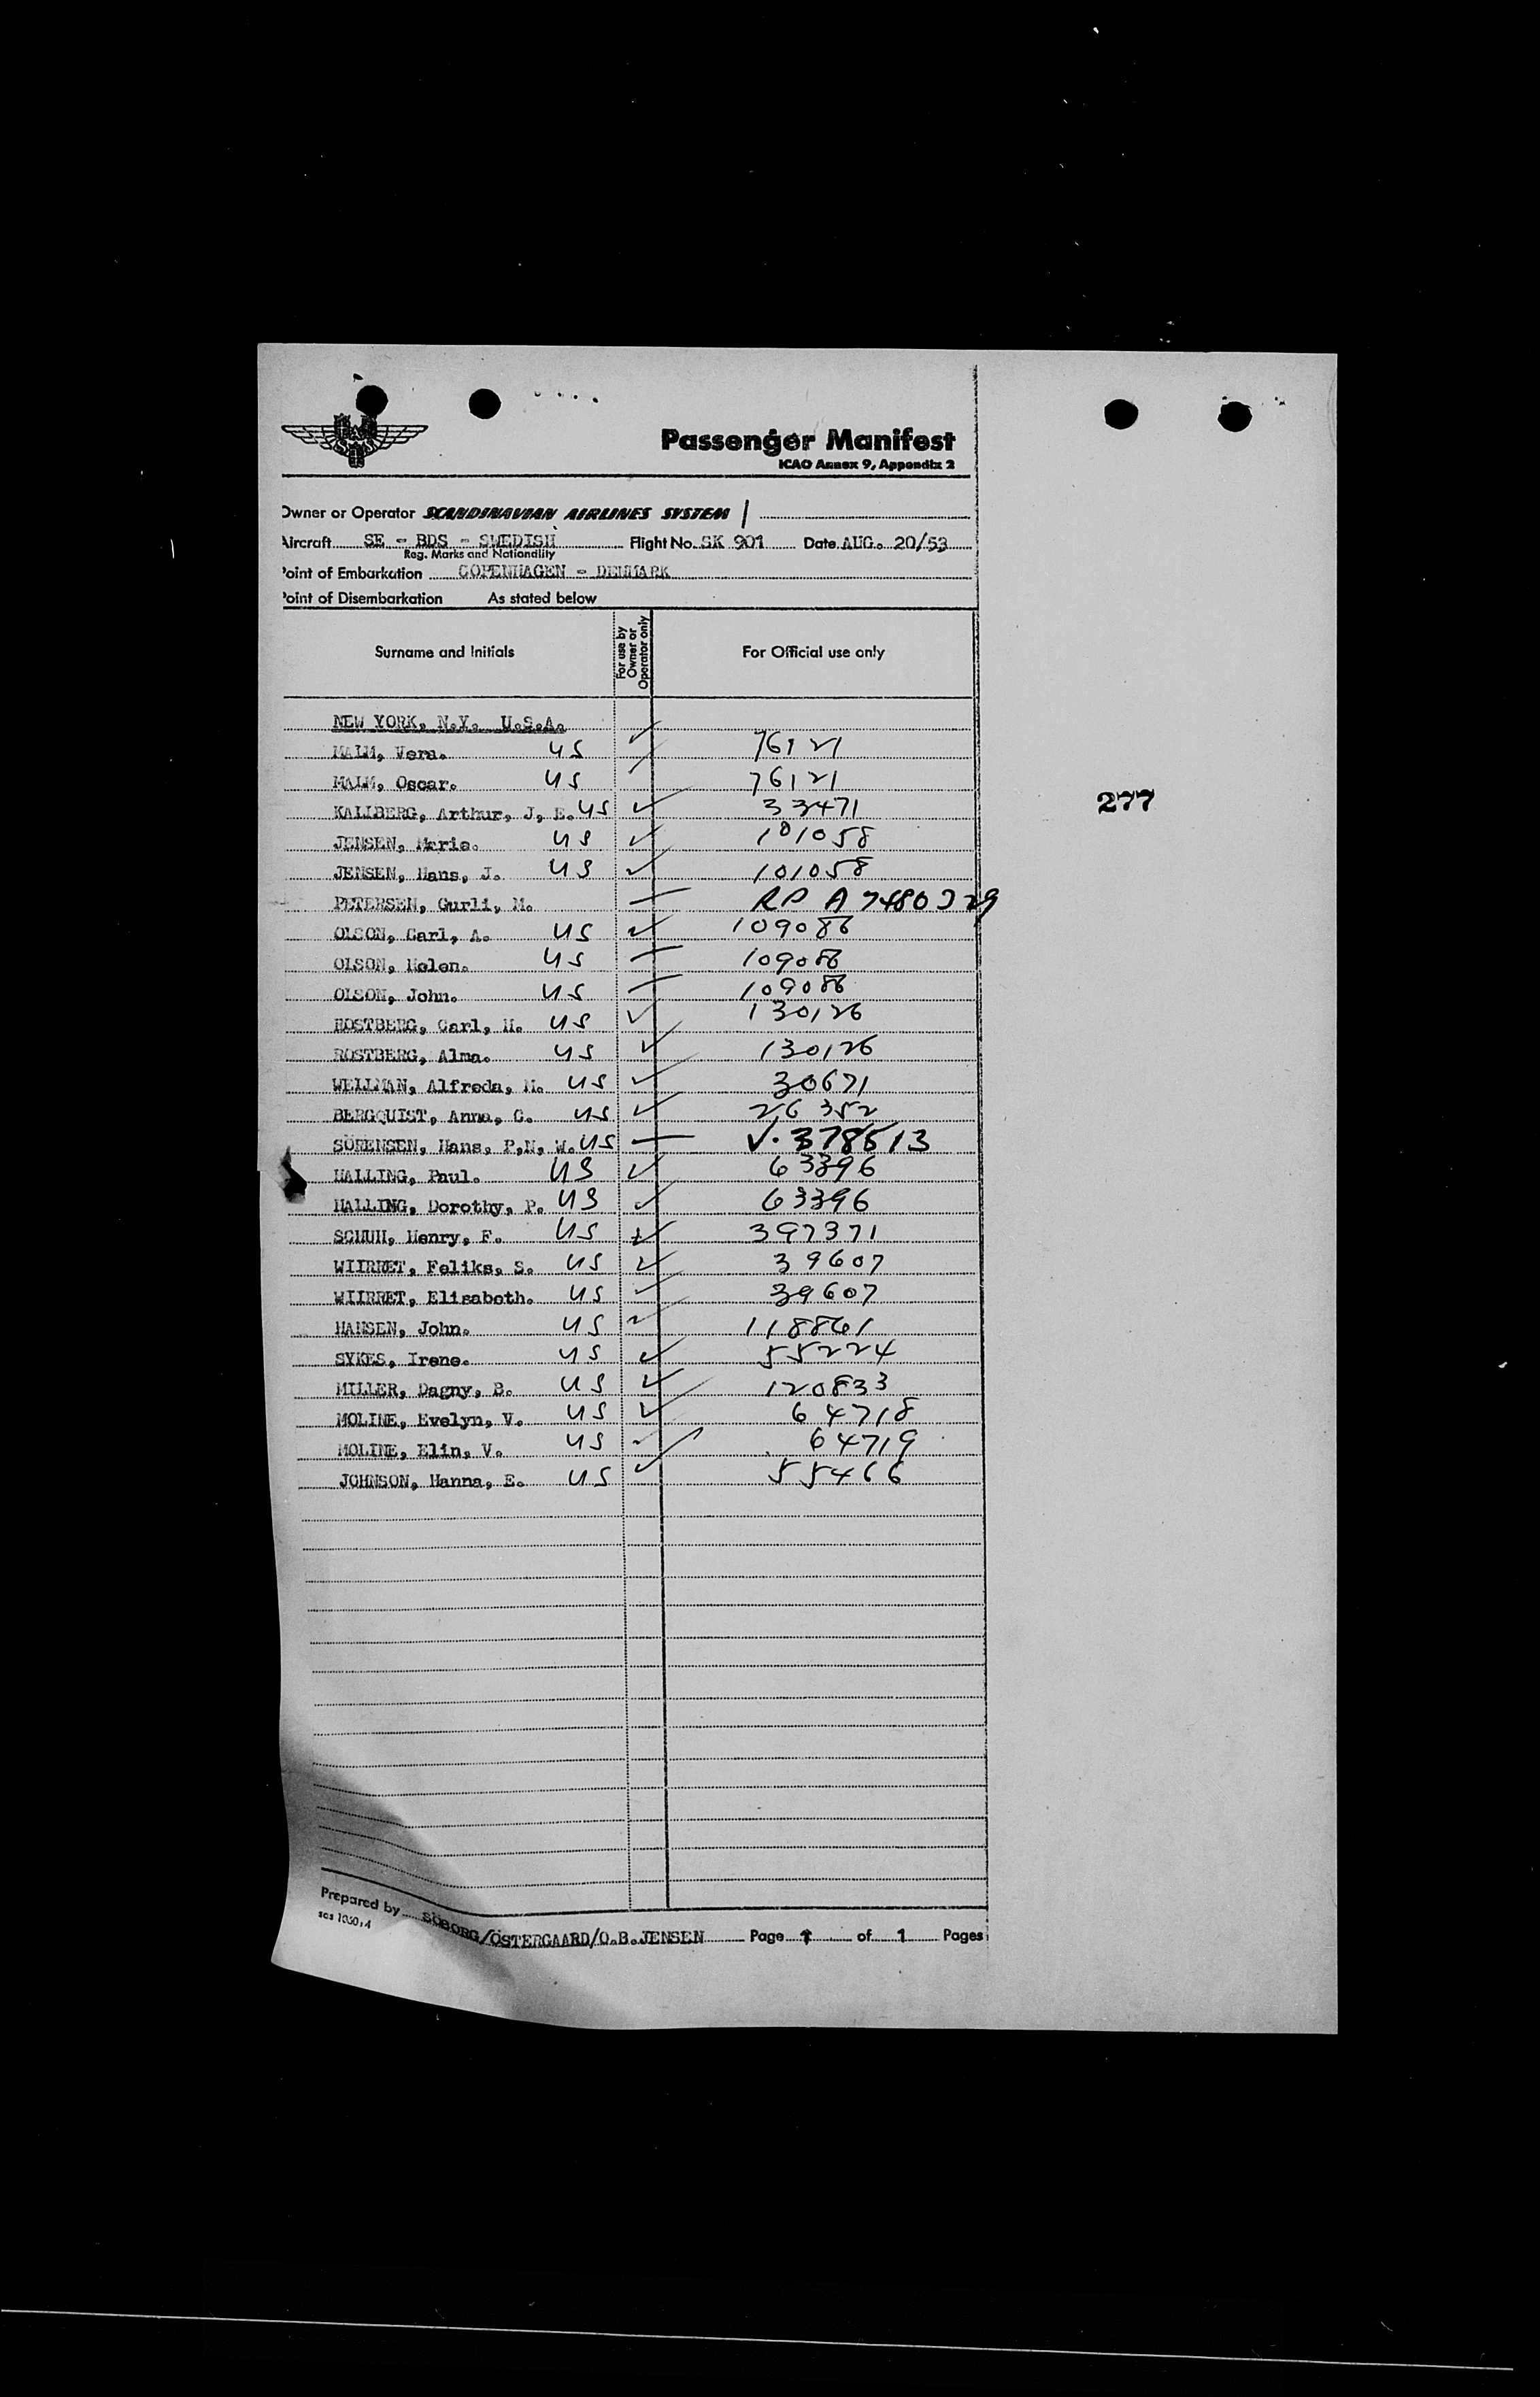 Passenger Manifest
ICAO Annex 9, Appendix 2
Owner or Operator SCANDINAVIAN AIRLINES SYSTEM
Aircraft SE - BDS - SWEDISH Flight No. SK 901 Date AUG. 20/53
Reg. Marks and Nationality
Point of Embarkation COPENHAGEN - DENMARK
Point of Disembarkation As stated below
Surname and Initials For use by Owner or Operator only For Official use only
NEW YORK, N.Y. U.S.A.
MALM, Vera. US 76121
MALM, Oscar. US 76121
277
KALLBERG, Arthur, J, E. US 33471
JENSEN, Marie. US 101058
JENSEN, Hans, J. US 101058
PETERSEN, Gurli, M. RP A 7480
OLSON, Carl, A. US 109086
OLSON, Helen. US 109086
OLSON, John. US 109086
ROSTBERG, Carl, H. US 130126
ROSTBERG, Alma. US 130126
WELLMAN, Alfreda, M. US 30671
BERGQUIST, Anna, C. US 26352
SÖRENSEN, Hans, P,N, W. US V. 378513
HALLING, Paul. US 63396
HALLING, Dorothy, P. US 63396
SCHUH, Henry, F. US 397371
WIIRRET, Feliks, S. US 39607
WIIRRET, Elisabeth. US 39607
HANSEN, John. US 118861
SYKES, Irene. US 55224
MILLER, Dagny, B. US 120833
MOLINE, Evelyn, V. US 64718
MOLINE, Elin, V. US 64719
JOHNSON, Hanna, E. US 55466
Prepared by SÖBORG/ÖSTERGAARD/O.B.JENSEN Page 1 of 1 Pages
sas 1050,4